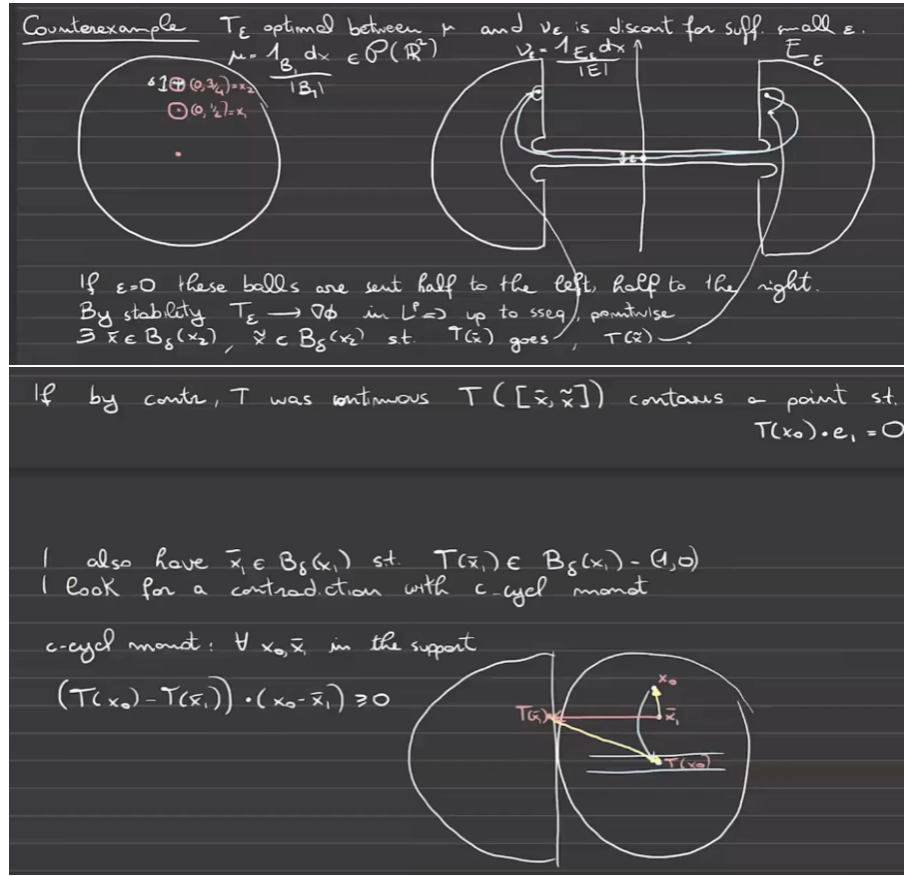 Counterexample T_ε optimal between μ and ν_ε is discont for suff. small ε.
μ = 1_{B_1} dx / |B_1| ∈ P(ℝ²) ν_ε = 1_{E_ε} dx / |E| E_ε
δ1 (0,3/4)=x_2
(0,1/2)=x_1
ε
If ε=0 these balls are sent half to the left, half to the right.
By stability T_ε → ∇ϕ in L^p => up to sseq, pointwise
∃ x̄ ∈ B_δ(x_2), x̃ ∈ B_δ(x_2) s.t. T(x̄) goes, T(x̃)
If by contr, T was continuous T([x̄, x̃]) contains a point s.t.
T(x_0)·e_1 = 0
I also have x̄_1 ∈ B_δ(x_1) s.t. T(x̄_1) ∈ B_δ(x_1) - (1,0)
I look for a contradiction with c-cycl monot
c-cycl monot: ∀ x_0, x̄_1 in the support
(T(x_0) - T(x̄_1)) · (x_0 - x̄_1) ≥ 0
x_0
T(x̄_1) x̄_1
T(x_0)